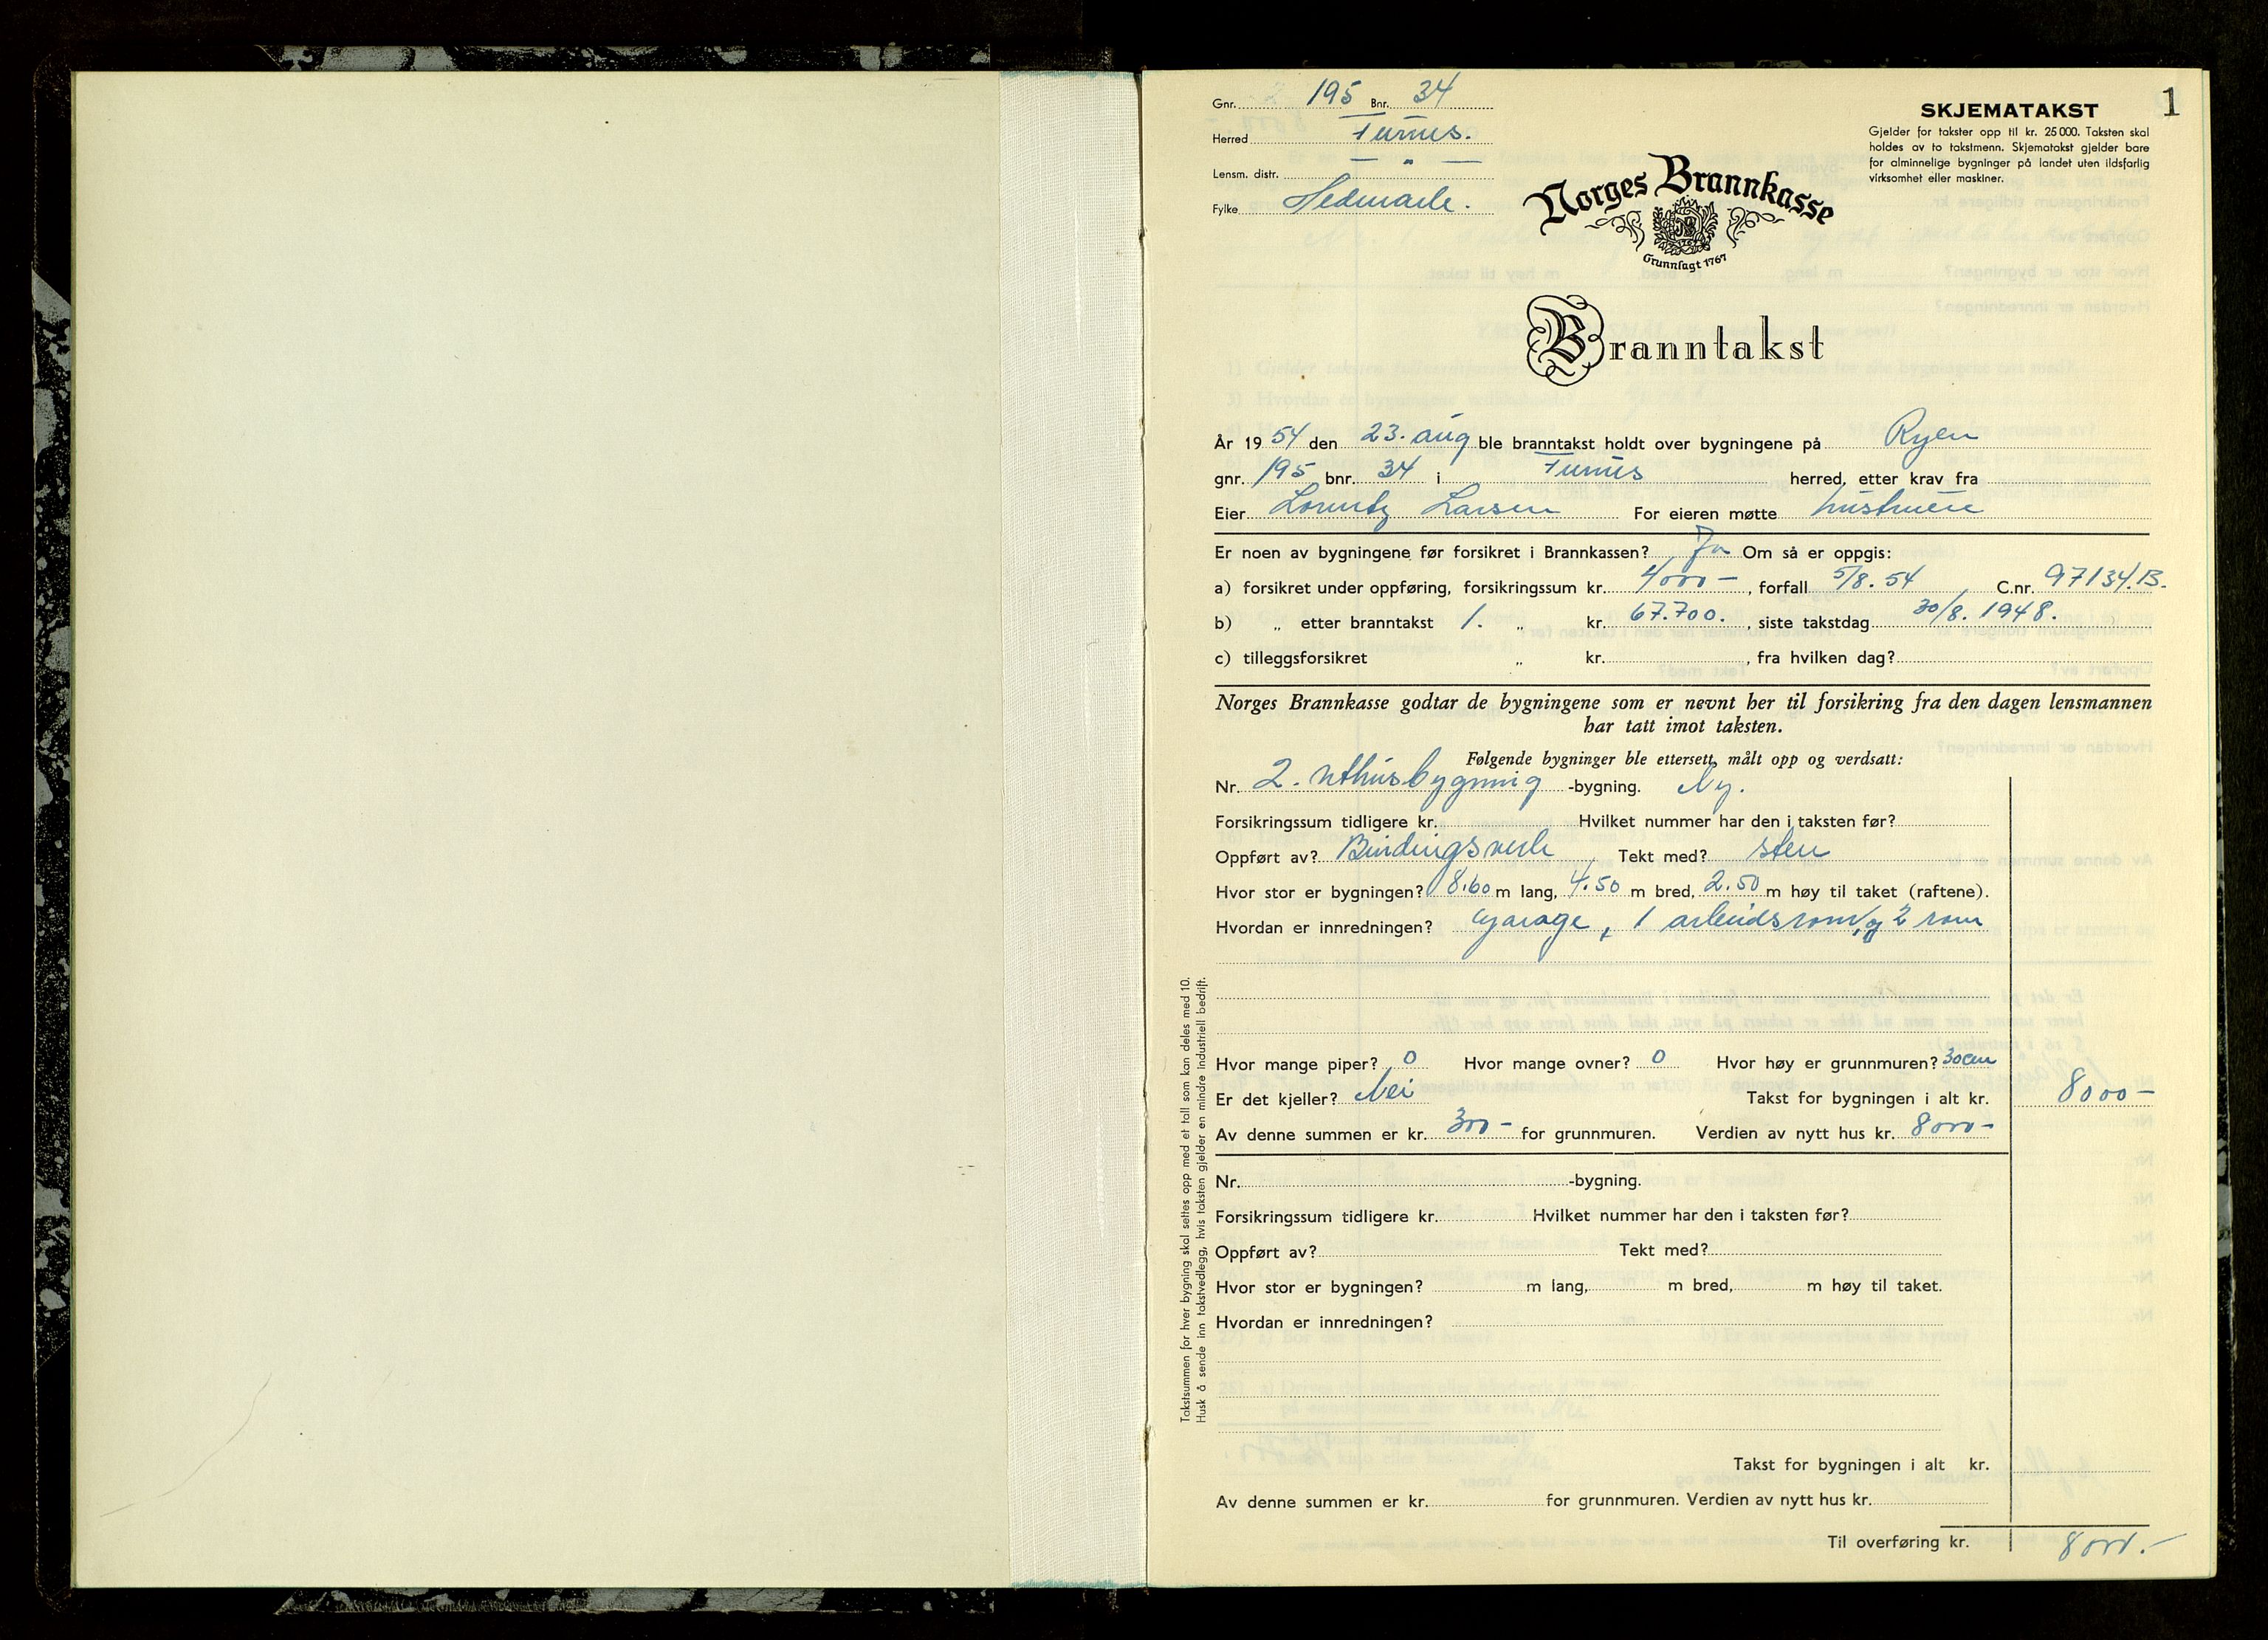 1
Gnr. 195 Bnr. 34
Herred Furnes.
Lensm. distr. — „ —
Fylke Hedmark.
SKJEMATAKST
Gjelder for takster opp til kr. 25 000. Taksten skal
holdes av to takstmenn. Skjematakst gjelder bare
for alminnelige bygninger på landet uten ildsfarlig
virksomhet eller maskiner.
Norges Brannkasse
Grunnlagt 1767
Branntakst
År 1954 den 23. aug ble branntakst holdt over bygningene på Ryen
gnr. 195 bnr. 34 i Furnes herred, etter krav fra
Eier Lorentz Larsen For eieren møtte hustruen
Er noen av bygningene før forsikret i Brannkassen? Ja Om så er oppgis:
a) forsikret under oppføring, forsikringssum kr. 4000 —, forfall 5/8. 54 C.nr. 97134.B.
b) „ etter branntakst 1. „ kr. 67.700. , siste takstdag 30/8. 1948.
c) tilleggsforsikret „ kr. , fra hvilken dag?
Norges Brannkasse godtar de bygningene som er nevnt her til forsikring fra den dagen lensmannen
har tatt imot taksten.
Følgende bygninger ble ettersett, målt opp og verdsatt:
Nr. 2. Uthusbygning -bygning. Ny.
Forsikringssum tidligere kr. Hvilket nummer har den i taksten før?
Oppført av? Bindingsverk Tekt med? sten
Hvor stor er bygningen? 8.60 m lang, 4.50 m bred, 2.50 m høy til taket (raftene).
Hvordan er innredningen? Garage, 1 arbeidsrom, og 2 rom
Hvor mange piper? 0 Hvor mange ovner? 0 Hvor høy er grunnmuren? 30cm
Er det kjeller? Nei Takst for bygningen i alt kr. 8000 —
Av denne summen er kr. 300 — for grunnmuren. Verdien av nytt hus kr. 8000 —
Nr. -bygning.
Forsikringssum tidligere kr. Hvilket nummer har den i taksten før?
Oppført av? Tekt med?
Hvor stor er bygningen? m lang, m bred, m høy til taket.
Hvordan er innredningen?
Takst for bygningen i alt kr.
Av denne summen er kr. for grunnmuren. Verdien av nytt hus kr.
Til overføring kr. 8000.—
Takstsummen for hver bygning skal settes opp med et tall som kan deles med 10.
Husk å sende inn takstvedlegg, hvis taksten gjelder en mindre industriell bedrift.